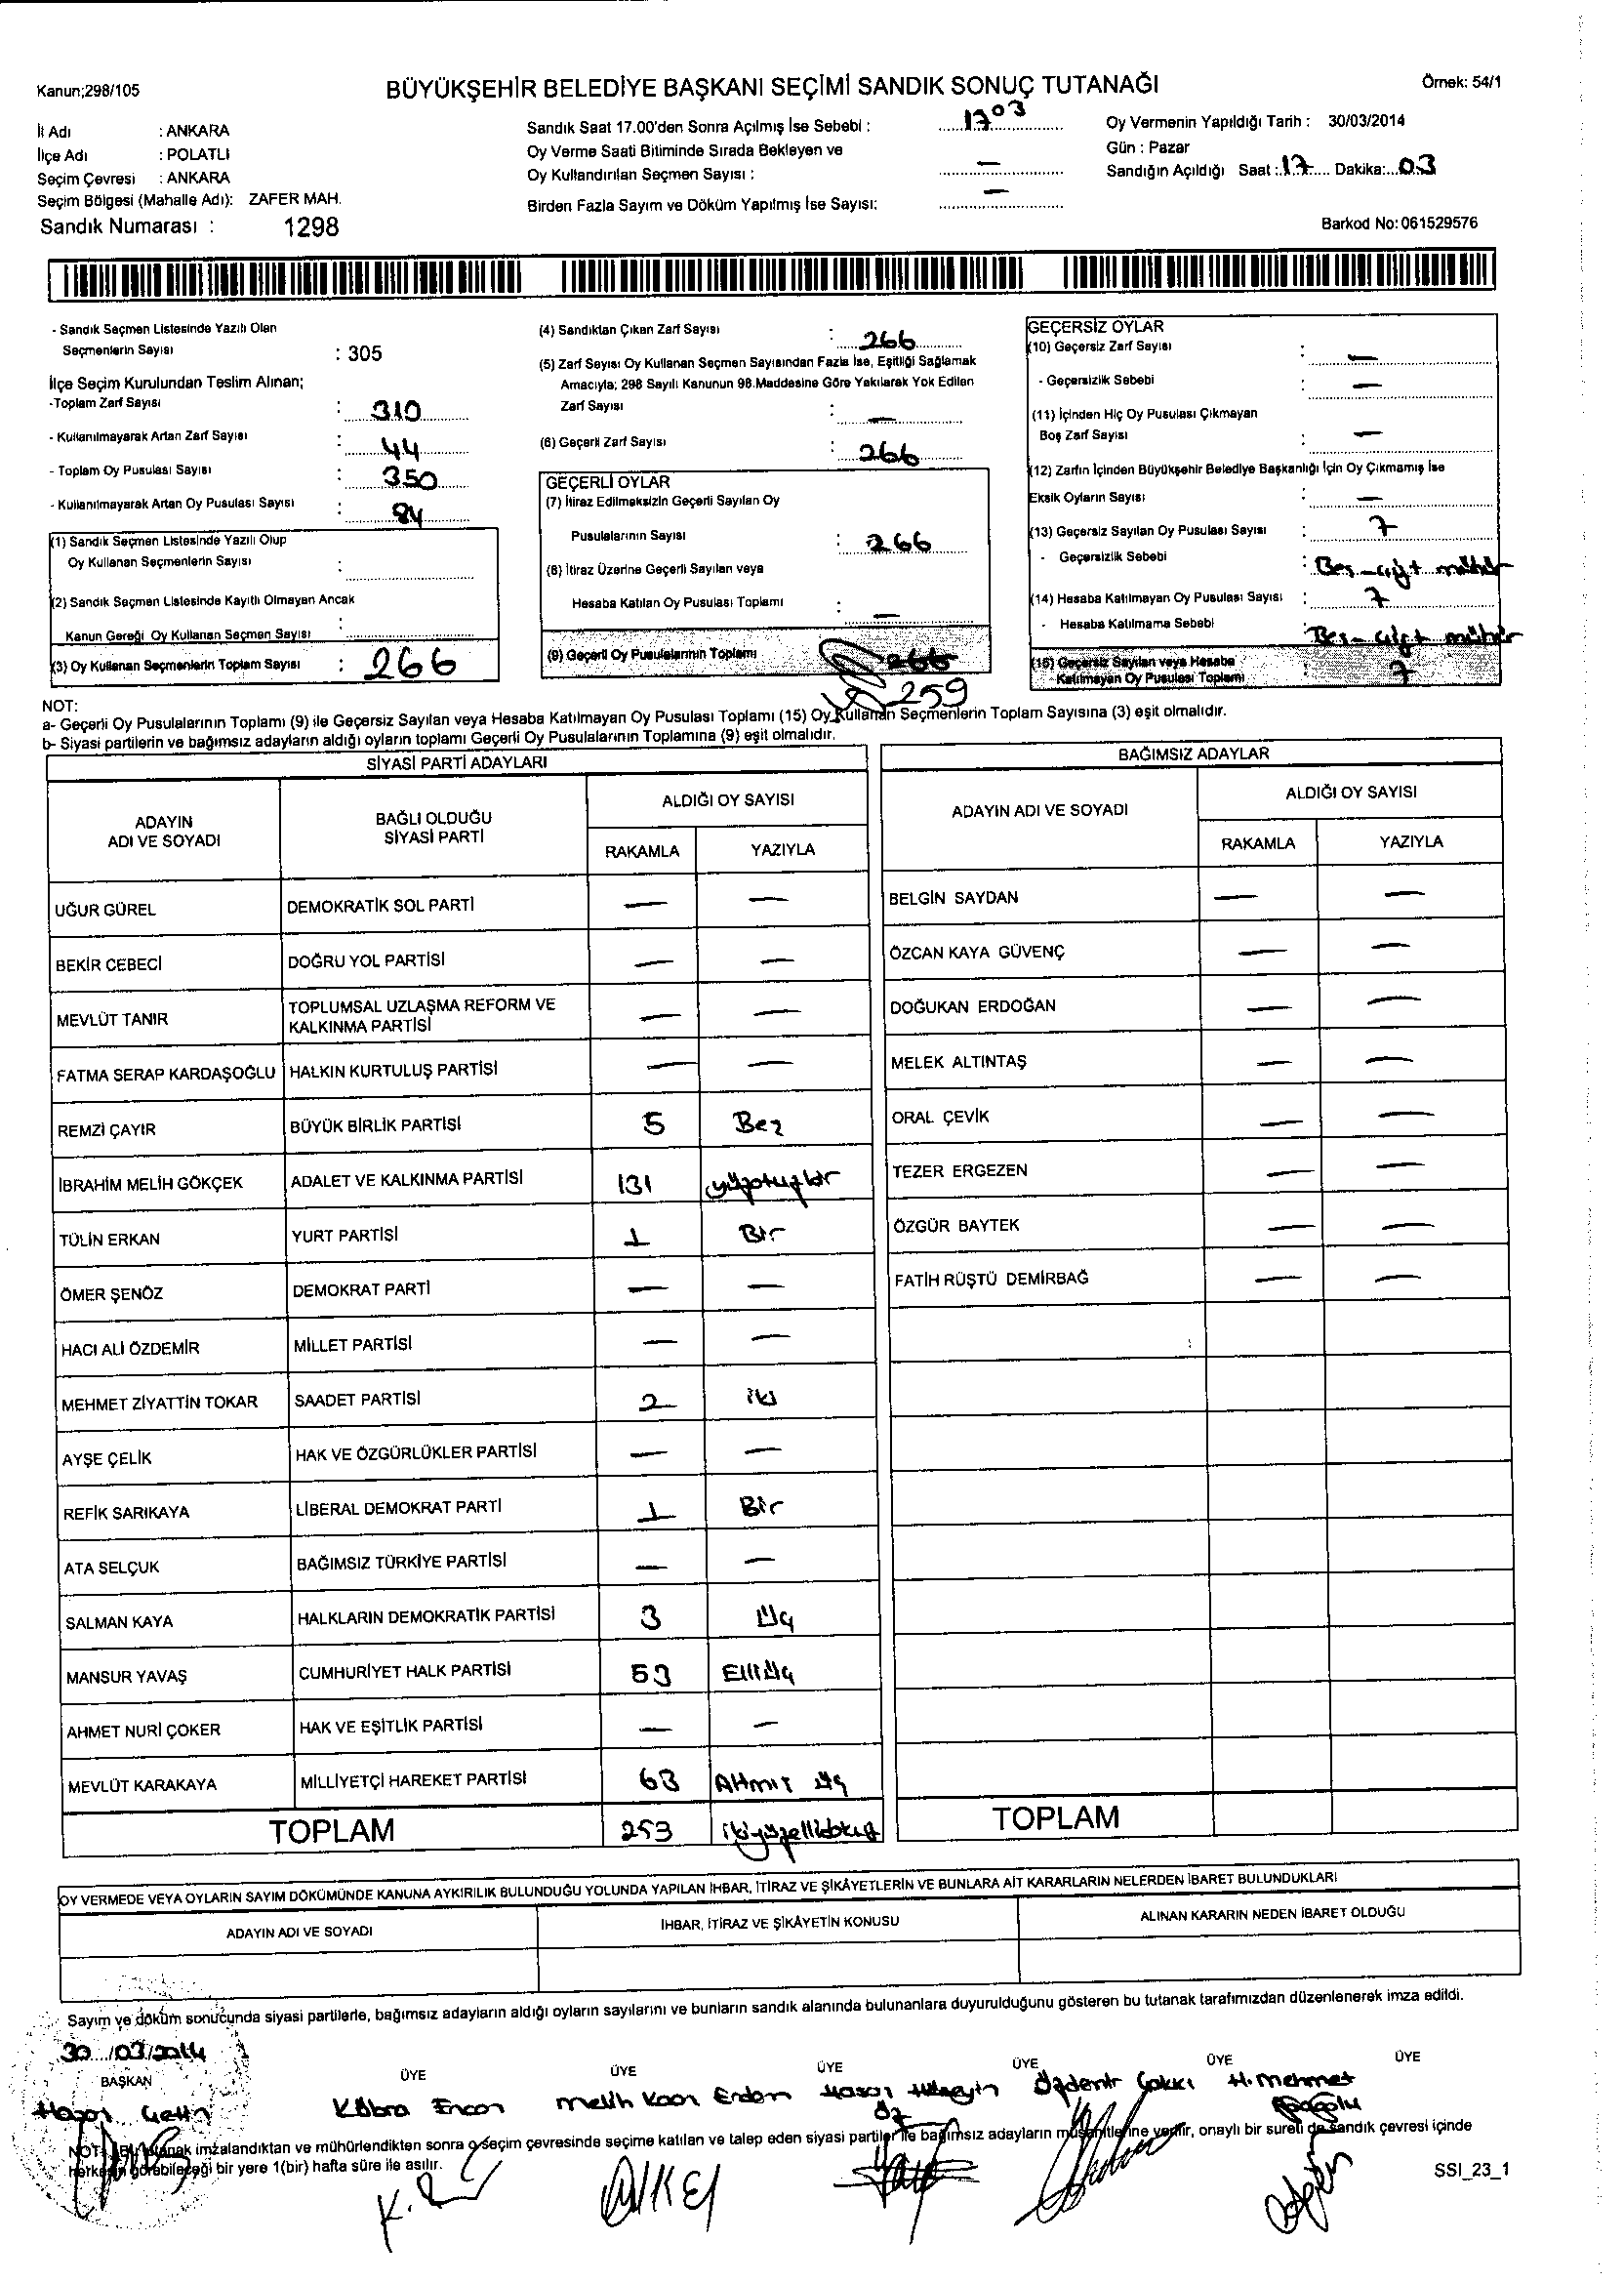 Kanun;298/105
BÜYÜKŞEHİR BELEDİYE BAŞKANI SEÇİMİ SANDIK SONUÇ TUTANAĞI
Örnek: 54/1
İl Adı : ANKARA
İlçe Adı : POLATLI
Seçim Çevresi : ANKARA
Seçim Bölgesi (Mahalle Adı): ZAFER MAH.
Sandık Numarası : 1298
Sandık Saat 17.00'den Sonra Açılmış İse Sebebi : 1703
Oy Verme Saati Bitiminde Sırada Bekleyen ve
Oy Kullandırılan Seçmen Sayısı : —
Birden Fazla Sayım ve Döküm Yapılmış İse Sayısı: —
Oy Vermenin Yapıldığı Tarih : 30/03/2014
Gün : Pazar
Sandığın Açıldığı Saat : 17 Dakika: 03
Barkod No: 061529576
- Sandık Seçmen Listesinde Yazılı Olan
Seçmenlerin Sayısı : 305
İlçe Seçim Kurulundan Teslim Alınan;
-Toplam Zarf Sayısı : 310
- Kullanılmayarak Artan Zarf Sayısı : 44
- Toplam Oy Pusulası Sayısı : 350
- Kullanılmayarak Artan Oy Pusulası Sayısı : 84
(1) Sandık Seçmen Listesinde Yazılı Olup
Oy Kullanan Seçmenlerin Sayısı :
(2) Sandık Seçmen Listesinde Kayıtlı Olmayan Ancak
Kanun Gereği Oy Kullanan Seçmen Sayısı :
(3) Oy Kullanan Seçmenlerin Toplam Sayısı : 266
(4) Sandıktan Çıkan Zarf Sayısı : 266
(5) Zarf Sayısı Oy Kullanan Seçmen Sayısından Fazla İse, Eşitliği Sağlamak
Amacıyla; 298 Sayılı Kanunun 98.Maddesine Göre Yakılarak Yok Edilen
Zarf Sayısı : —
(6) Geçerli Zarf Sayısı : 266
GEÇERLİ OYLAR
(7) İtiraz Edilmeksizin Geçerli Sayılan Oy
Pusulalarının Sayısı : 266
(8) İtiraz Üzerine Geçerli Sayılan veya
Hesaba Katılan Oy Pusulası Toplamı : —
(9) Geçerli Oy Pusulalarının Toplamı 266
259
GEÇERSİZ OYLAR
(10) Geçersiz Zarf Sayısı : —
- Geçersizlik Sebebi : —
(11) İçinden Hiç Oy Pusulası Çıkmayan
Boş Zarf Sayısı : —
(12) Zarfın İçinden Büyükşehir Belediye Başkanlığı İçin Oy Çıkmamış İse
Eksik Oyların Sayısı : —
(13) Geçersiz Sayılan Oy Pusulası Sayısı : 7
- Geçersizlik Sebebi : Boş-çift mühür
(14) Hesaba Katılmayan Oy Pusulası Sayısı : 7
- Hesaba Katılmama Sebebi : Boş-çift mühür
(15) Geçersiz Sayılan veya Hesaba
Katılmayan Oy Pusulası Toplamı : 7
NOT:
a- Geçerli Oy Pusulalarının Toplamı (9) ile Geçersiz Sayılan veya Hesaba Katılmayan Oy Pusulası Toplamı (15) Oy Kullanan Seçmenlerin Toplam Sayısına (3) eşit olmalıdır.
b- Siyasi partilerin ve bağımsız adayların aldığı oyların toplamı Geçerli Oy Pusulalarının Toplamına (9) eşit olmalıdır.
SİYASİ PARTİ ADAYLARI
ADAYIN ADI VE SOYADI BAĞLI OLDUĞU SİYASİ PARTİ ALDIĞI OY SAYISI
RAKAMLA YAZIYLA
UĞUR GÜREL DEMOKRATİK SOL PARTİ — —
BEKİR CEBECİ DOĞRU YOL PARTİSİ — —
MEVLÜT TANIR TOPLUMSAL UZLAŞMA REFORM VE KALKINMA PARTİSİ — —
FATMA SERAP KARDAŞOĞLU HALKIN KURTULUŞ PARTİSİ — —
REMZİ ÇAYIR BÜYÜK BİRLİK PARTİSİ 5 Beş
İBRAHİM MELİH GÖKÇEK ADALET VE KALKINMA PARTİSİ 131 yüzotuzbir
TÜLİN ERKAN YURT PARTİSİ 1 Bir
ÖMER ŞENÖZ DEMOKRAT PARTİ — —
HACI ALİ ÖZDEMİR MİLLET PARTİSİ — —
MEHMET ZİYATTİN TOKAR SAADET PARTİSİ 2 iki
AYŞE ÇELİK HAK VE ÖZGÜRLÜKLER PARTİSİ — —
REFİK SARIKAYA LİBERAL DEMOKRAT PARTİ 1 Bir
ATA SELÇUK BAĞIMSIZ TÜRKİYE PARTİSİ — —
SALMAN KAYA HALKLARIN DEMOKRATİK PARTİSİ 3 Üç
MANSUR YAVAŞ CUMHURİYET HALK PARTİSİ 53 Elliüç
AHMET NURİ ÇOKER HAK VE EŞİTLİK PARTİSİ — —
MEVLÜT KARAKAYA MİLLİYETÇİ HAREKET PARTİSİ 63 Altmış üç
TOPLAM 253 ikiyüzellidokuz
BAĞIMSIZ ADAYLAR
ADAYIN ADI VE SOYADI ALDIĞI OY SAYISI
RAKAMLA YAZIYLA
BELGİN SAYDAN — —
ÖZCAN KAYA GÜVENÇ — —
DOĞUKAN ERDOĞAN — —
MELEK ALTINTAŞ — —
ORAL ÇEVİK — —
TEZER ERGEZEN — —
ÖZGÜR BAYTEK — —
FATİH RÜŞTÜ DEMİRBAĞ — —
TOPLAM
OY VERMEDE VEYA OYLARIN SAYIM DÖKÜMÜNDE KANUNA AYKIRILIK BULUNDUĞU YOLUNDA YAPILAN İHBAR, İTİRAZ VE ŞİKÂYETLERİN VE BUNLARA AİT KARARLARIN NELERDEN İBARET BULUNDUKLARI
ADAYIN ADI VE SOYADI İHBAR, İTİRAZ VE ŞİKÂYETİN KONUSU ALINAN KARARIN NEDEN İBARET OLDUĞU
Sayım ve döküm sonucunda siyasi partilerle, bağımsız adayların aldığı oyların sayılarını ve bunların sandık alanında bulunanlara duyurulduğunu gösteren bu tutanak tarafımızdan düzenlenerek imza edildi.
30/03/2014
BAŞKAN ÜYE ÜYE ÜYE ÜYE ÜYE ÜYE
Hasan Çetin Kübra Ercan Melih Kaan Erdem Hasan Hüseyin Öz H. Mehmet
NOT: Bu tutanak imzalandıktan ve mühürlendikten sonra o seçim çevresinde seçime katılan ve talep eden siyasi partiler ile bağımsız adayların müşahitlerine verilir, onaylı bir sureti de sandık çevresi içinde
herkesin görebileceği bir yere 1(bir) hafta süre ile asılır.
SSI_23_1